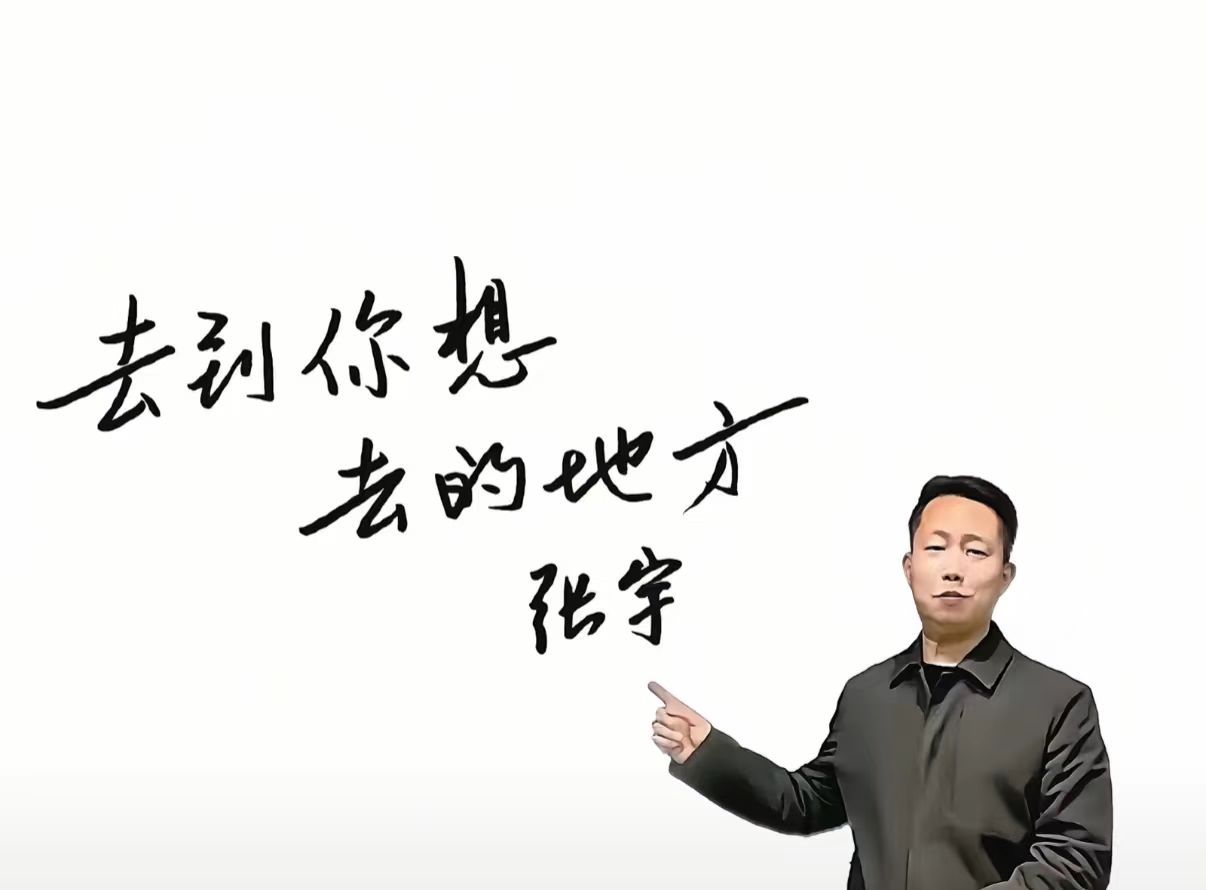 去到你想
去的地方
张宇